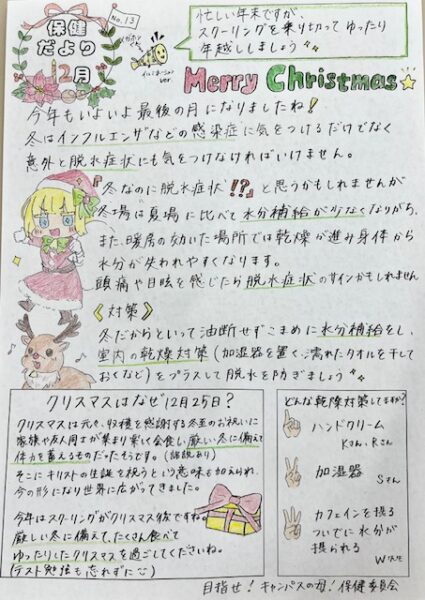 No.13
保健
だより
12月
忙しい年末ですが、
スクーリングを乗り切って ゆったり
年越ししましょう
Merry Christmas
今年もいよいよ最後の月になりましたね!
冬はインフルエンザなどの感染症に気をつけるだけでなく
意外と脱水症状にも気をつけなければいけません。
『冬なのに脱水症状!?』と思うかもしれませんが
冬場は夏場に比べて水分補給が少なくなりがち。
また、暖房の効いた場所では乾燥が進み身体から
水分が失われやすくなります。
頭痛や目眩を感じたら脱水症状のサインかもしれません
《対策》
冬だからといって油断せずこまめに水分補給をし、
室内の乾燥対策(加湿器を置く、濡れたタオルを干して
おくなど)をプラスして脱水を防ぎましょう
クリスマスはなぜ12月25日?
クリスマスは元々、収穫を感謝する冬至のお祝いに
家族や友人同士が集まり楽しく会食し厳しい冬に備えて
体力を蓄えるものだったそうです。(諸説あり)
そこにキリストの生誕を祝うという意味も加えられ
今の形になり世界に広がってきました。
今年はスクーリングがクリスマス後ですね。
厳しい冬に備えて、たくさん食べて
ゆったりしたクリスマスを過ごしてくださいね。
(テスト勉強も忘れずに)
どんな乾燥対策してますか?
ハンドクリーム
Kさん、Rさん
加湿器
Sさん
カフェインを摂る
ついでに水分が
摂られる
W先生
目指せ!キャンパスの母!保健委員会